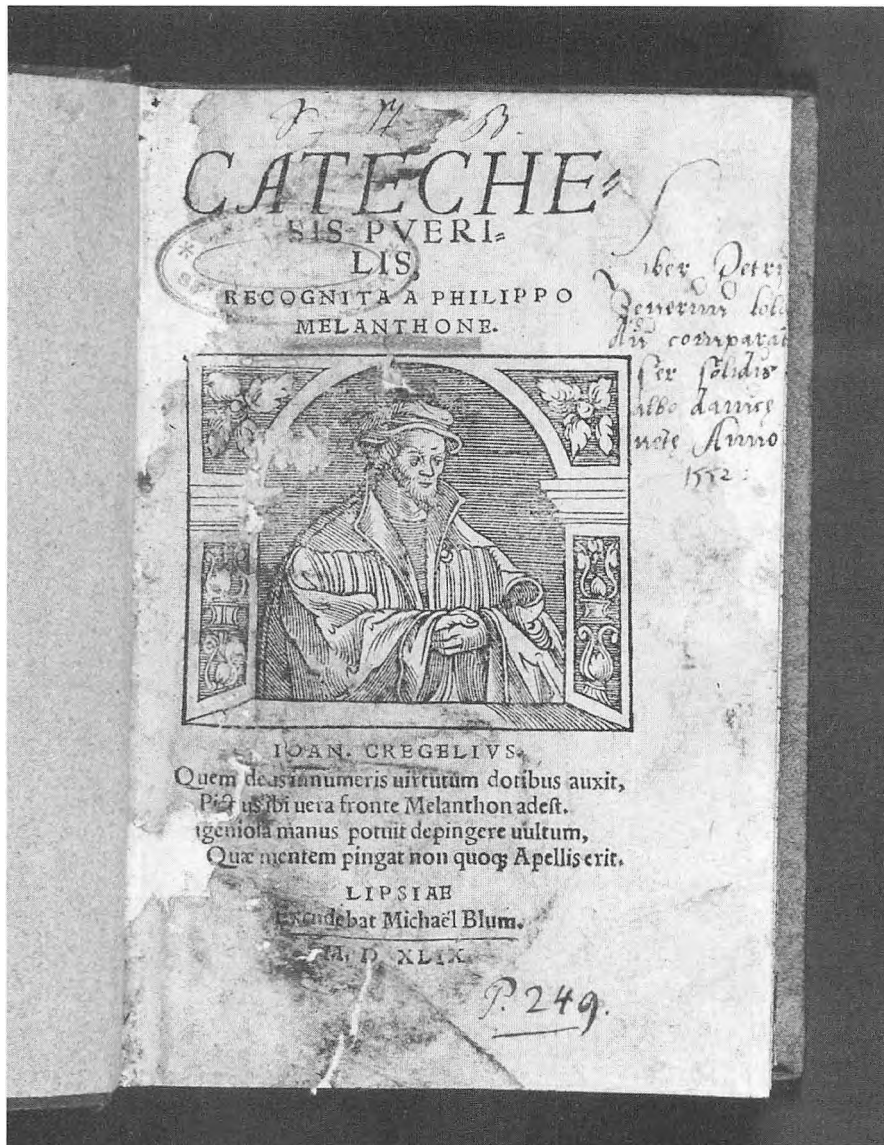 CATECHE=
SIS PVERI=
LIS,
RECOGNITA A PHILIPPO
MELANTHONE.
iber Petri
comparat
ser solidis
albo
Anno
1552
IOAN. CREGELIVS.
Quem deus innumeris uirtutum dotibus auxit,
Pictus ibi uera fronte Melanthon adest.
igeniosa manus potuit depingere uultum,
Quæ mentem pingat non quoq; Apellis erit.
LIPSIAE
Excudebat Michaël Blum.
M. D XLIX.
P. 249.